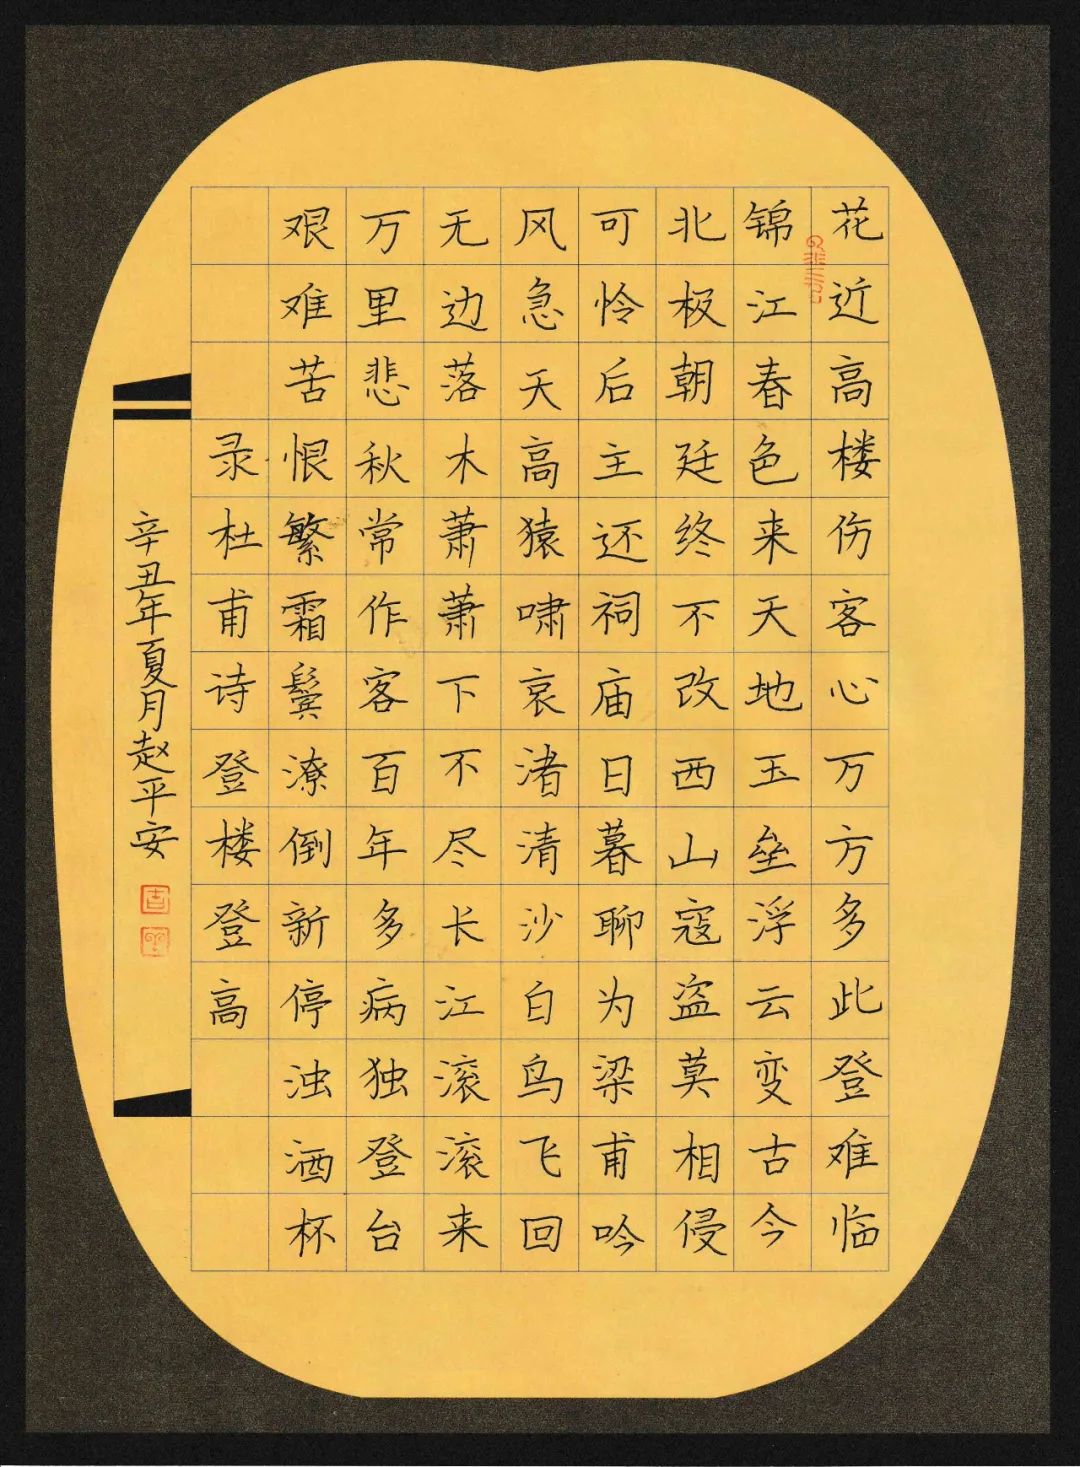 花近高楼伤客心万方多此登难临
锦江春色来天地玉垒浮云变古今
北极朝廷终不改西山寇盗莫相侵
可怜后主还祠庙日暮聊为梁甫吟
风急天高猿啸哀渚清沙白鸟飞回
无边落木萧萧下不尽长江滚滚来
万里悲秋常作客百年多病独登台
艰难苦恨繁霜鬓潦倒新停浊酒杯
录杜甫诗登楼登高
辛丑年夏月赵平安